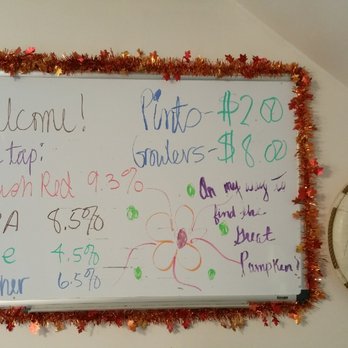 elcome!
Pints - $2.00
tap:
Growlers - $8.00
ush Red 9.3%
PA 8.5%
e 4.5%
her 6.5%
On my way to
find the
Great
Pumpken?